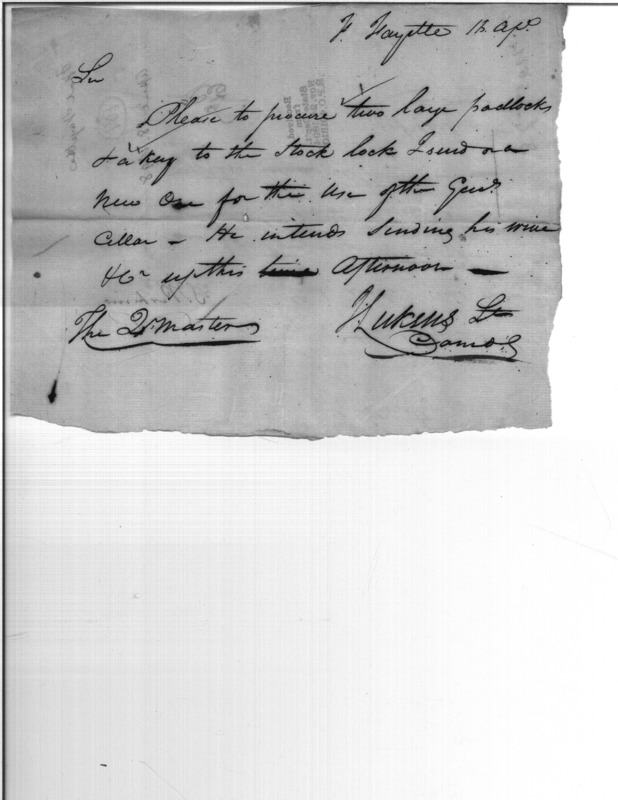 F. Fayette 12. Apl.
Sir
Please to procure two large padlocks
& a key to the Stock lock I send or a
New One for the Use of the Genls.
Cellar - He intends Sending his wine
&c up this time Afternoon
The Qr Master
J Lukens Lt
Comdg